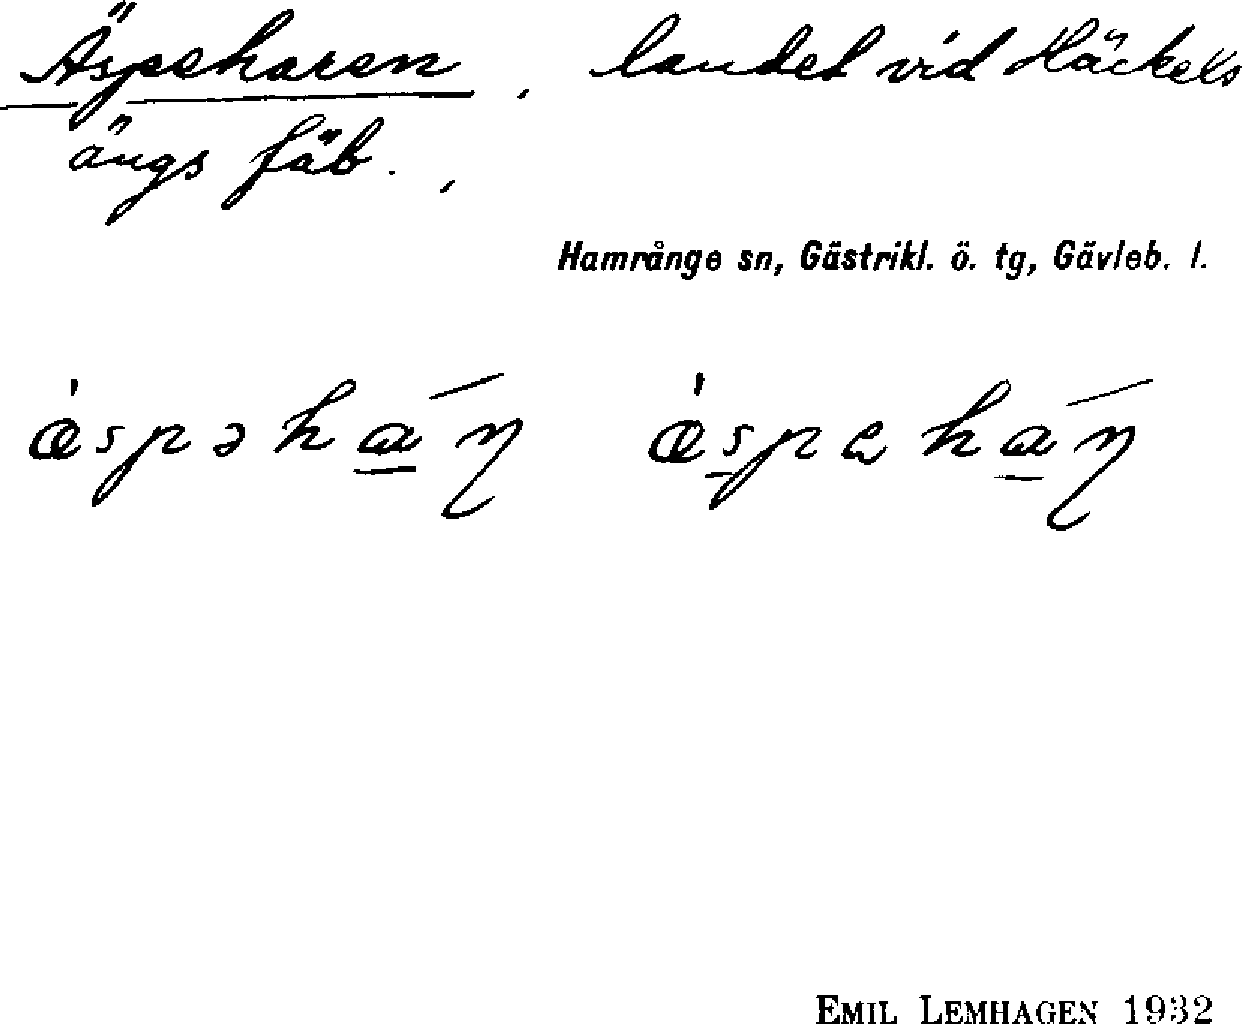 Äspeharen, landet vid Häckels
ängs fäb.,
Hamrånge sn, Gästrikl. ö. tg, Gävleb. l.
EMIL LEMHAGEN 1932